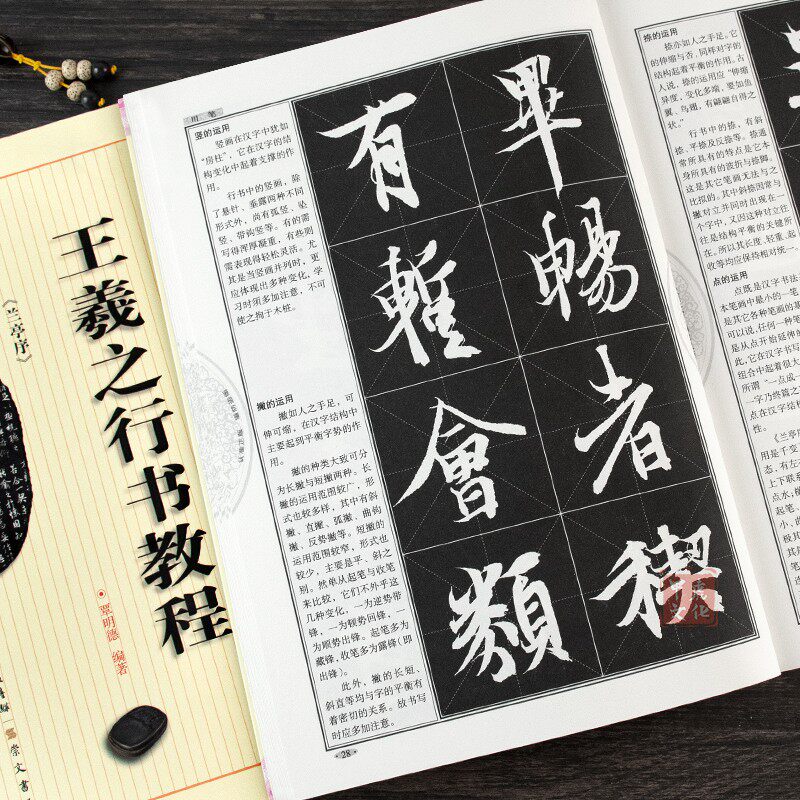 王羲之行书教程
《兰亭序》
覃明德 编著
崇文书
用笔
竖的运用
竖画在汉字中犹如
“房柱”，它在汉字的结
构变化中起着支撑的作
用。
行书中的竖画，除
了悬针、垂露两种不同
形式外，尚有弧竖、竖
竖、带钩竖等。有的需
写得浑厚凝重，有些则
需表现得轻松灵活。尤
其是当竖画并列时，更
应体现出多种变化，学
习时须多加注意，不可
使之拘于木桩。
撇的运用
撇如人之手足，可
伸可缩，在汉字结构中
主要起到平衡字势的作
用。
撇的种类大致可分
为长撇与短撇两种。长
撇的运用范围较广，形
式也较多样，其中有斜
撇、直撇、弧撇、曲钩
撇、反势撇等。短撇的
运用范围较窄，形式也
较少，主要是平、斜之
别。然单从起笔与收笔
来比较，它们不外乎这
几种变化，一为逆势带
锋，一为顿势回锋，一
为顺势出锋。起笔多为
藏锋，收笔多为露锋（即
出锋）。
此外，撇的长短、
斜直等均与字的平衡有
着密切的关系。故书写
时应多加注意。
畢 有
暢 暫
者 會
稧 類
28
捺的运用
捺亦如人之手足。它
的伸缩与否，同样对字的
结构起着平衡的作用。古
人说，捺的运用应“伸缩
异度，变化多端，要如鱼
翼、鸟翅，有翩翩自得之
状。”
行书中的捺，有斜
捺、平捺及反捺等。捺通
常所具有的特点是它本
身所具有的波折与捺脚。
这是其它笔画无法与之
比拟的。其中斜捺因常与
撇对立并同时出现在一
个字中，又因这种对立往
往是结构平衡的关键所
在，所以其长度、轻重、起
收等均应保持相对统一。
点的运用
点既是汉字书法
本笔画中最小的一笔
是其它各种笔画的基
可以说，任何一种笔
是从点开始延伸
此，它在汉字书写
组合中起着很大
所谓“一点成一
一字乃终篇之
点在汉字结
性。
《兰亭
用是千变
态，有左
上下联系
点水，
起笔、